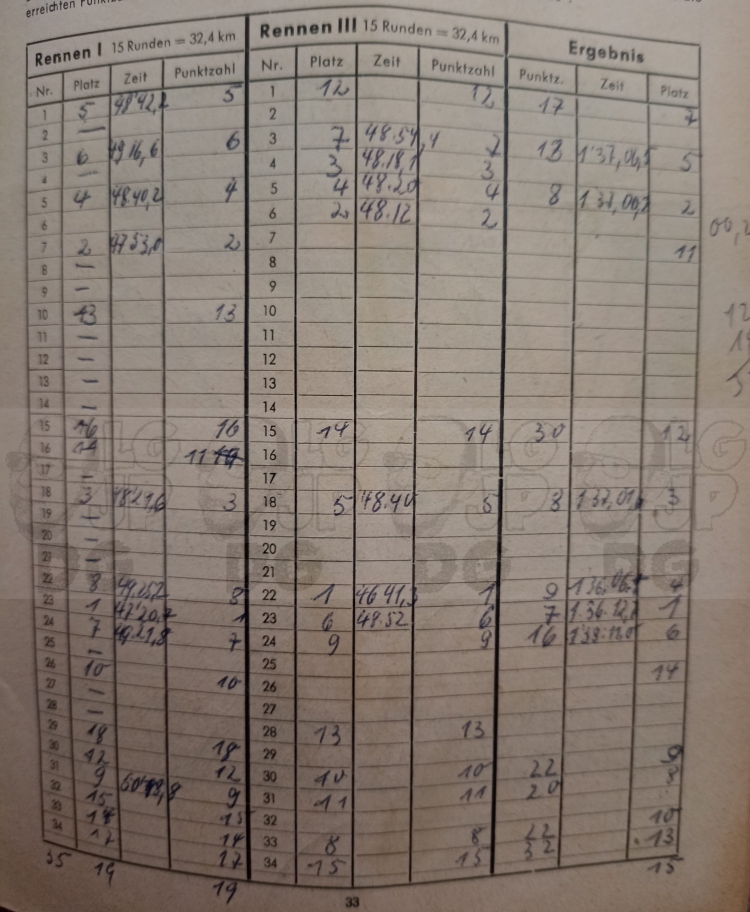 erreichten
Rennen I 15 Runden = 32,4 km Rennen III 15 Runden = 32,4 km Ergebnis
Nr. Platz Zeit Punktzahl Nr. Platz Zeit Punktzahl Punktz. Zeit Platz
1 5 48'42,2 5 1 12 12 17 7
2 — 2
3 6 4916,6 6 3 7 48.54,4 7 13 1'37,06,5 5
4 — 4 3 48.18,1 3
5 4 48.40,2 4 5 4 48.20 4 8 1 37,00,2 2
6 6 2 48.12 2
7 2 4753,0 2 7 11
8 — 8
9 — 9
10 13 13 10
11 — 11
12 — 12
13 — 13
14 — 14
15 16 16 15 14 14 30 12
16 11 16
17 — 17
18 3 4821,6 3 18 5 48.40 5 8 1.37,01 3
19 — 19
20 — 20
21 — 21
22 8 4925,2 8 22 1 4641,3 1 9 4
23 1 47'20,7 1 23 6 48.52 6 7 1.36.12, 1
24 7 4921,8 7 24 9 9 16 6
25 — 25
26 10 10 26 14
27 — 27
28 — 28 13 13
29 18 18 29
30 12 12 30 10 10 22 9
31 9 9 31 11 11 20 8
32 15 15 32
33 14 14 33 8 8 22 10
34 17 17 34 15 15 32 13
35 19 19 15
33
LG JP DG